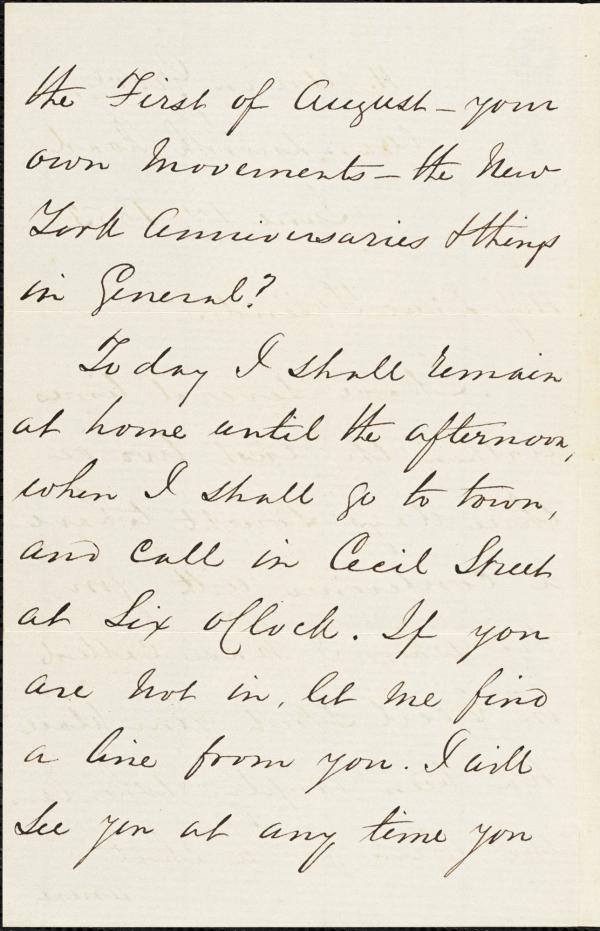 the First of August – your
own Movements – the New
York Anniversaries & things
in General?
Today I shall remain
at home until the afternoon,
when I shall go to town,
and call in Cecil Street
at Six o'Clock. If you
are not in, let me find
a line from you. I will
see you at any time you